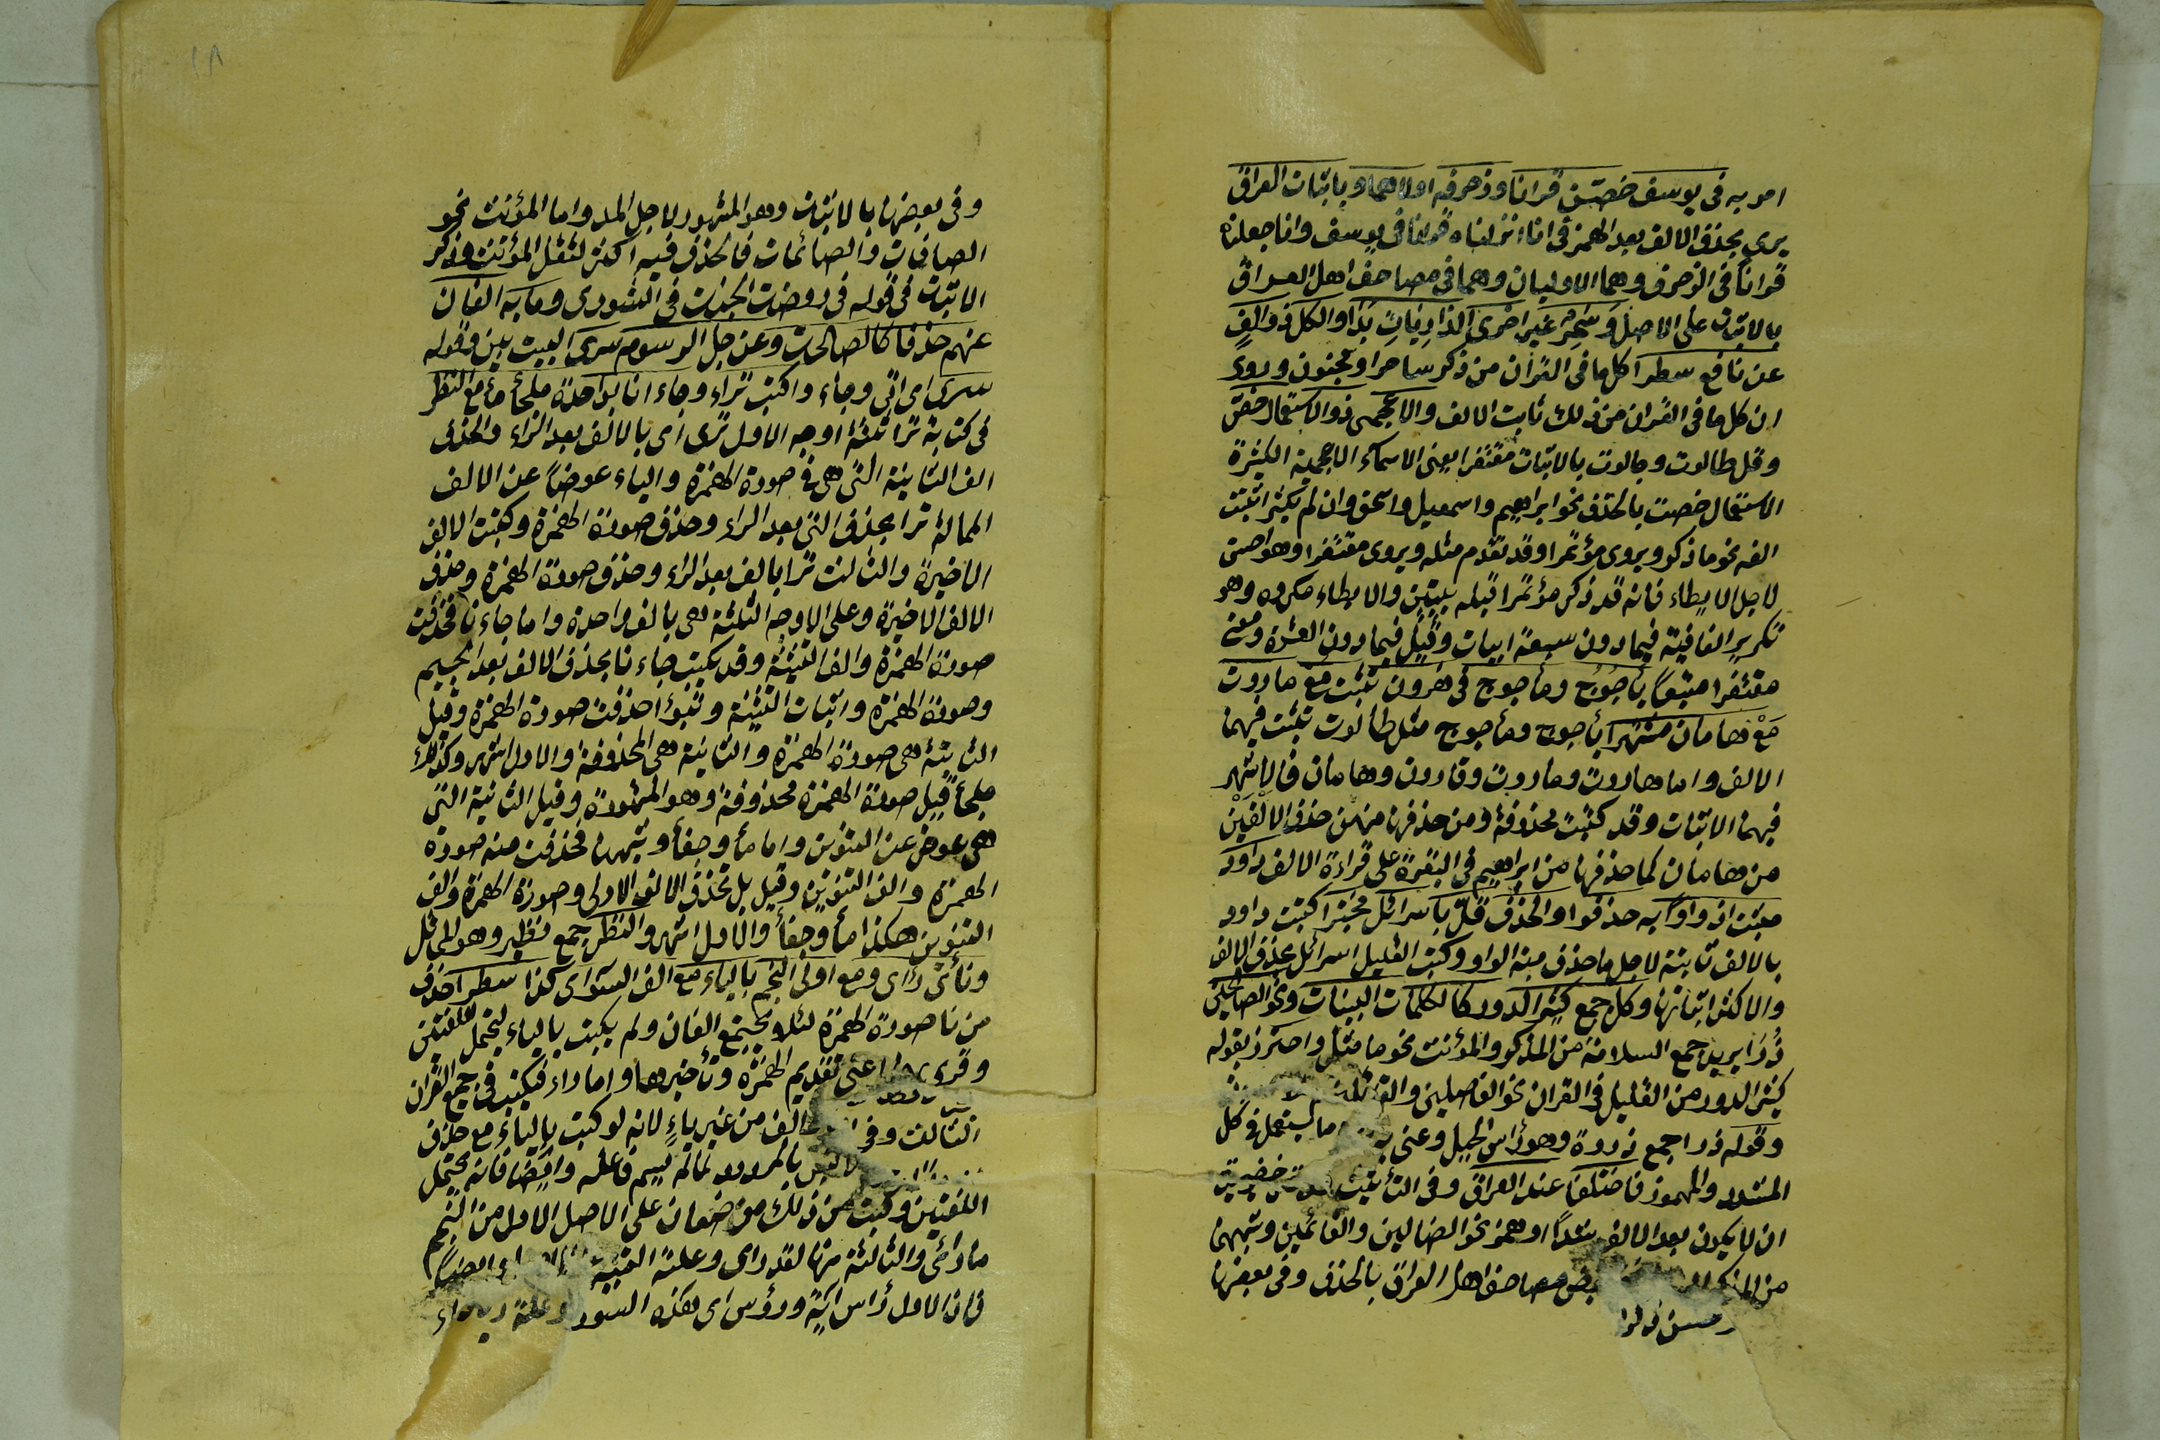 امر به فى يوسف خصّتن قرانا وزخرفه اولاهما وباثبات العراق
يرى بحذف الالف بعد الهمز فى انا انزلناه قرانا فى يوسف وانا جعلناه
قراناً فى الزخرف وهما الاوليان وهما فى مصاحف اهل العراق
بالاثبات على الاصل وسَحِرٌ غير اخرى الذاريات بَدَا والكل ذو الفٍ
عن نافع سطرا كل ما فى القران من ذكر ساحر او مجنون وروى
ان كل ما فى القران من ذلك ثابت الالف والاعجمى ذو الاستعمال خصّ
وقل طالوت وجالوت بالاثبات مقتفرا يعنى الاسماء الاعجمية الكثيرة
الاستعمال خصت بالحذف نحو ابراهيم واسمعيل واسحق وان لم يكثر اثبتت
الفه نحو ما ذكر ويروى مؤتمرا وقد تقدم مثله ويروى مقتفرا وهو احسن
لاجل الايطاء فانه قد ذكر مؤتمرا قبله ببيتين والايطاء مكروه وهو
تكرير القافية فيما دون سبعة ابيات وقيل فيما دون العشرة ومعنى
مقتفرا متبعاً يأجُوج ومأجوج فى هرون تثبت مع هاروت
مَعْ هامان مشتهرا يأجوج ومأجوج مثل طالوت تثبت فيهما
الالف واما هاروت وماروت وقارون وهامان فالاشهر
فيهما الاثبات وقد كتبت محذوفة ومن حذفها منهن حذف الالفين
من هامان كما حذفها من ابراهيم فى البقرة على قراءة الالف داود
مثبت اذ واواً به حذفوا والحذف قلّ باسرائل مختبرا كتبت داود
بالالف ثابتة لاجل ما حذف منه الواو وكتب القليل اسرائل بحذف الالف
والاكثر اثباتها وكل جمع كثير الدور كالكلمات البينات ونحو الصالحين
ذُرَا يريد جمع السلامة من المذكر والمؤنث نحو ما مثل واحترز بقوله
كثير الدور من القليل فى القران نحو الفاصلين
وقوله ذرا جمع ذروة وهو رأس الجبل وعنى به ما يستعمل فى كل
المشدد والمهموز فاختلفا عند العراق وفى التأنيث
ان لا يكون بعد الالف شداً او همز نحو الضالين والقائمين وشبههما
من المذكر بعض مصاحف اهل العراق بالحذف وفى بعضها
وفى بعضها بالاثبات وهو المشهور لاجل المد واما المؤنث نحو
الصافات والصائمات فالحذف فيه اكثر لثقل المؤنث وذكر
الاثبات فى قوله فى روضات الجنات فى الشورى وما به الفان
عنهم حذفا كالصالحات وعن جل الرسوم سرى البيت بين قوله
سرى اى اتى وجاء واكتب تراء وجاء انا بواحدة ملجأ ماء مع النظر
فى كتابة ترا ثلثة اوجه الاول ترى اى بالالف بعد الراء والحذف
الف الثانية التى هى فى صورة الهمزة والياء عوضاً عن الالف
الممالة ترا بحذف التى بعد الراء وحذف صورة الهمزة وكتبت الالف
الاخيرة والثالث ترا بالف بعد الراء وحذف صورة الهمزة وحذف
الالف الاخيرة وعلى الاوجه الثلثة هى بالف واحدة واما جاءنا فحذفت
صورة الهمزة والف التثنية وقد يكتب جاءنا بحذف الالف بعد الجيم
وصورة الهمزة واثبات التثنية وتبوّءا حذفت صورة الهمزة وقيل
الثانية هى صورة الهمزة والثانية هى المحذوفة والاول اشهر وكذلك
ملجأ قيل صورة الهمزة محذوفة وهو المشهورة وقيل الثانية التى
هى عوض عن التنوين واما ماء وجفأ وشبهها فحذفت منه صورة
الهمزة والف التنوين وقيل بل تحذف الالف الاولى وصورة الهمزة والف
التنوين هكذا مأ وجفأ والاول اشهر والنظر جمع نظير وهو المماثل
ونأى رأى ومع اولى النجم بالياء مع الف السوأى كذا سطرا حذف
من نا صورة الهمزة لئلا يجتمع الفان ولم يكتب بالياء ليحتمل اللغتين
وقرئ اعنى تقديم الهمزة وتأخيرها واما راء فكتب فى جمع القران
الف من غير ياءٍ لانه لو كتب بالياء مع حذف
لالتبس بالمردود لما لم يسم فاعله وايضا فانه يحتمل
اللغتين وكتب من ذلك موضعان على الاصل الاول من النجم
ما رأى والثالثة منها لقد راى وعلته التنبيه
فان الاول رأس آية ورؤس اى هذه السور